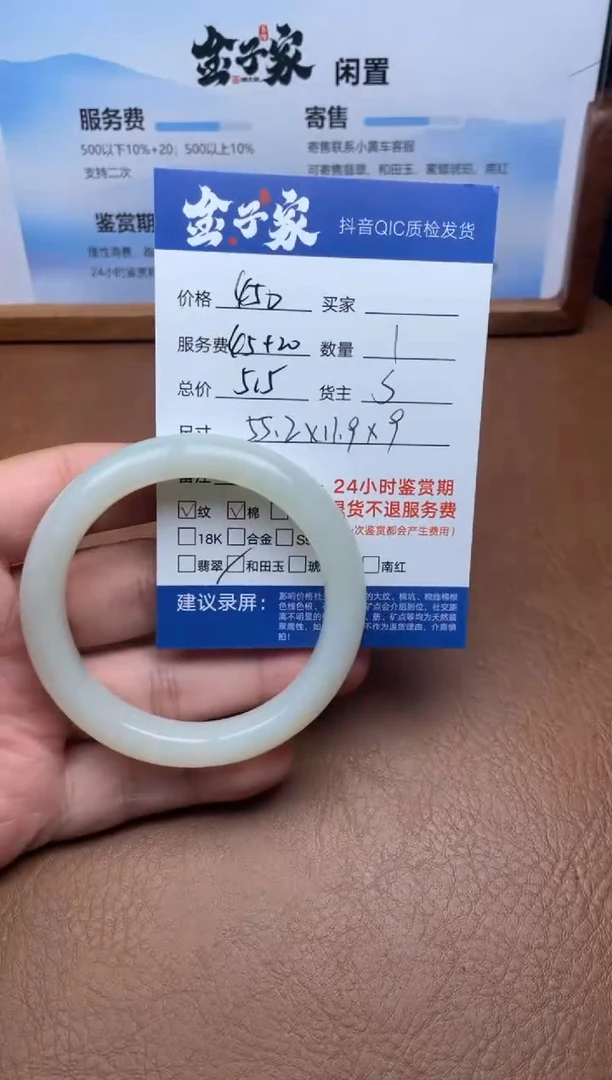 金子家 闲置
服务费
500以下10%+20；500以上10%
支持二次
寄售
寄售联系小黄车客服
可寄售翡翠、和田玉、蜜蜡琥珀、南红
鉴赏期
24小时鉴赏
金子家 抖音QIC质检发货
价格 450 买家
服务费 45+20 数量 1
总价 515 货主 S
尺寸 55.2×11.9×9
备注
24小时鉴赏期
退货不退服务费
次鉴赏都会产生费用）
纹 棉
18K 合金
翡翠 和田玉 琥 南红
建议录屏：
影响价格社
的大纹，棉坑，棉线棉根
色线色根，
矿点会介绍到位，社交距
离不明显的
、筋、矿点等均为天然翡
翠属性，如
不作为退货理由，介意慎
拍！